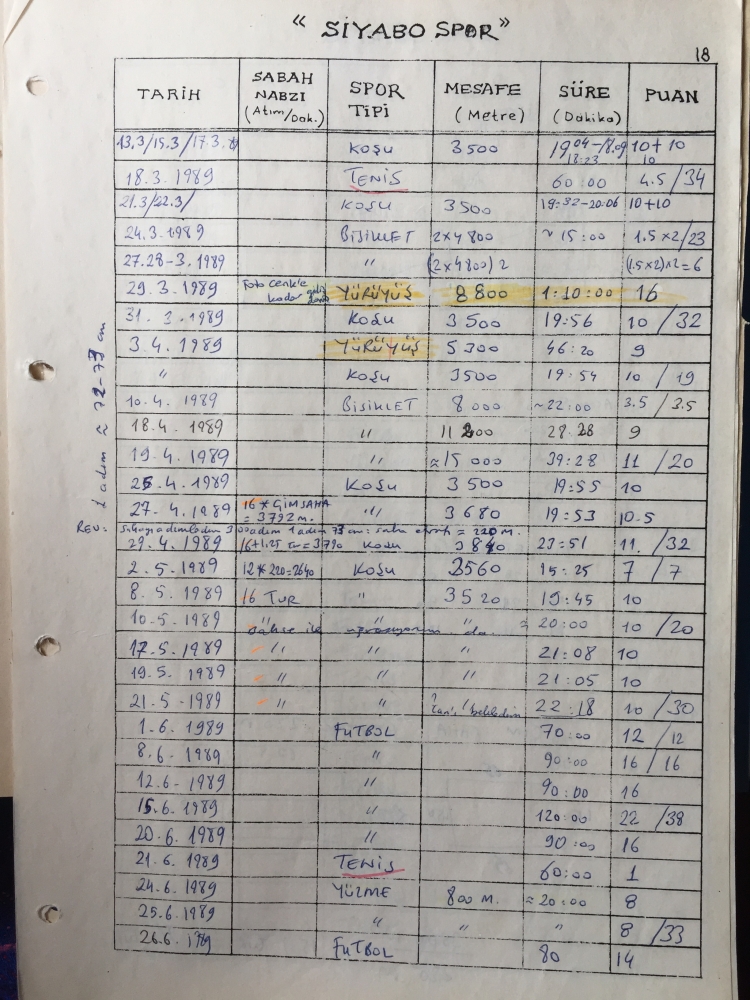 “ SİYABO SPOR ”
18
TARİH SABAH NABZI (Atım/Dak.) SPOR TİPİ MESAFE (Metre) SÜRE (Dakika) PUAN
13.3/15.3/17.3. KOŞU 3500 19 04 - 18.09 18:23 10+10 10
18.3.1989 TENİS 60:00 4.5/34
21.3/22.3/ KOŞU 3500 19:32-20:06 10+10
24.3.1989 BİSİKLET 2x4800 ~15:00 1.5x2/23
27.28-3.1989 " (2x4800)2 (1.5x2)x2=6
29.3.1989 Foto Cenk'e kadar YÜRÜYÜŞ 8800 1:10:00 16
31.3.1989 KOŞU 3500 19:56 10 /32
3.4.1989 YÜRÜYÜŞ 5300 46:20 9
" KOŞU 3500 19:54 10 /19
10.4.1989 BİSİKLET 8000 ~22:00 3.5/3.5
18.4.1989 " 11200 28.28 9
19.4.1989 " ≈15000 39:28 11 /20
25.4.1989 KOŞU 3500 19:55 10
27.4.1989 16 * ÇİM SAHA = 3792 m. " 3680 19:53 10.5
REV: 1 adım 73 cm: = 220 M.
29.4.1989 16+1.25 Tur=3790 KOŞU 3840 23:51 11. /32
2.5.1989 12*220=2640 KOŞU 2560 15:25 7 /7
8.5.1989 16 TUR " 3520 19:45 10
10.5.1989 " " " 20:00 10 /20
17.5.1989 " " " 21:08 10
19.5.1989 " " " 21:05 10
21.5-1989 " " " 22:18 10 /30
1.6.1989 FUTBOL 70:00 12 /12
8.6.1989 " 90:00 16 /16
12.6-1989 " 90:00 16
15.6.1989 " 120:00 22 /38
20.6.1989 " 90:00 16
21.6.1989 TENİS 60:00 1
24.6.1989 YÜZME 800 M. ≈20:00 8
25.6.1989 " " " 8 /33
26.6.1989 FUTBOL 80 14
1 adım ≈ 72-73 cm